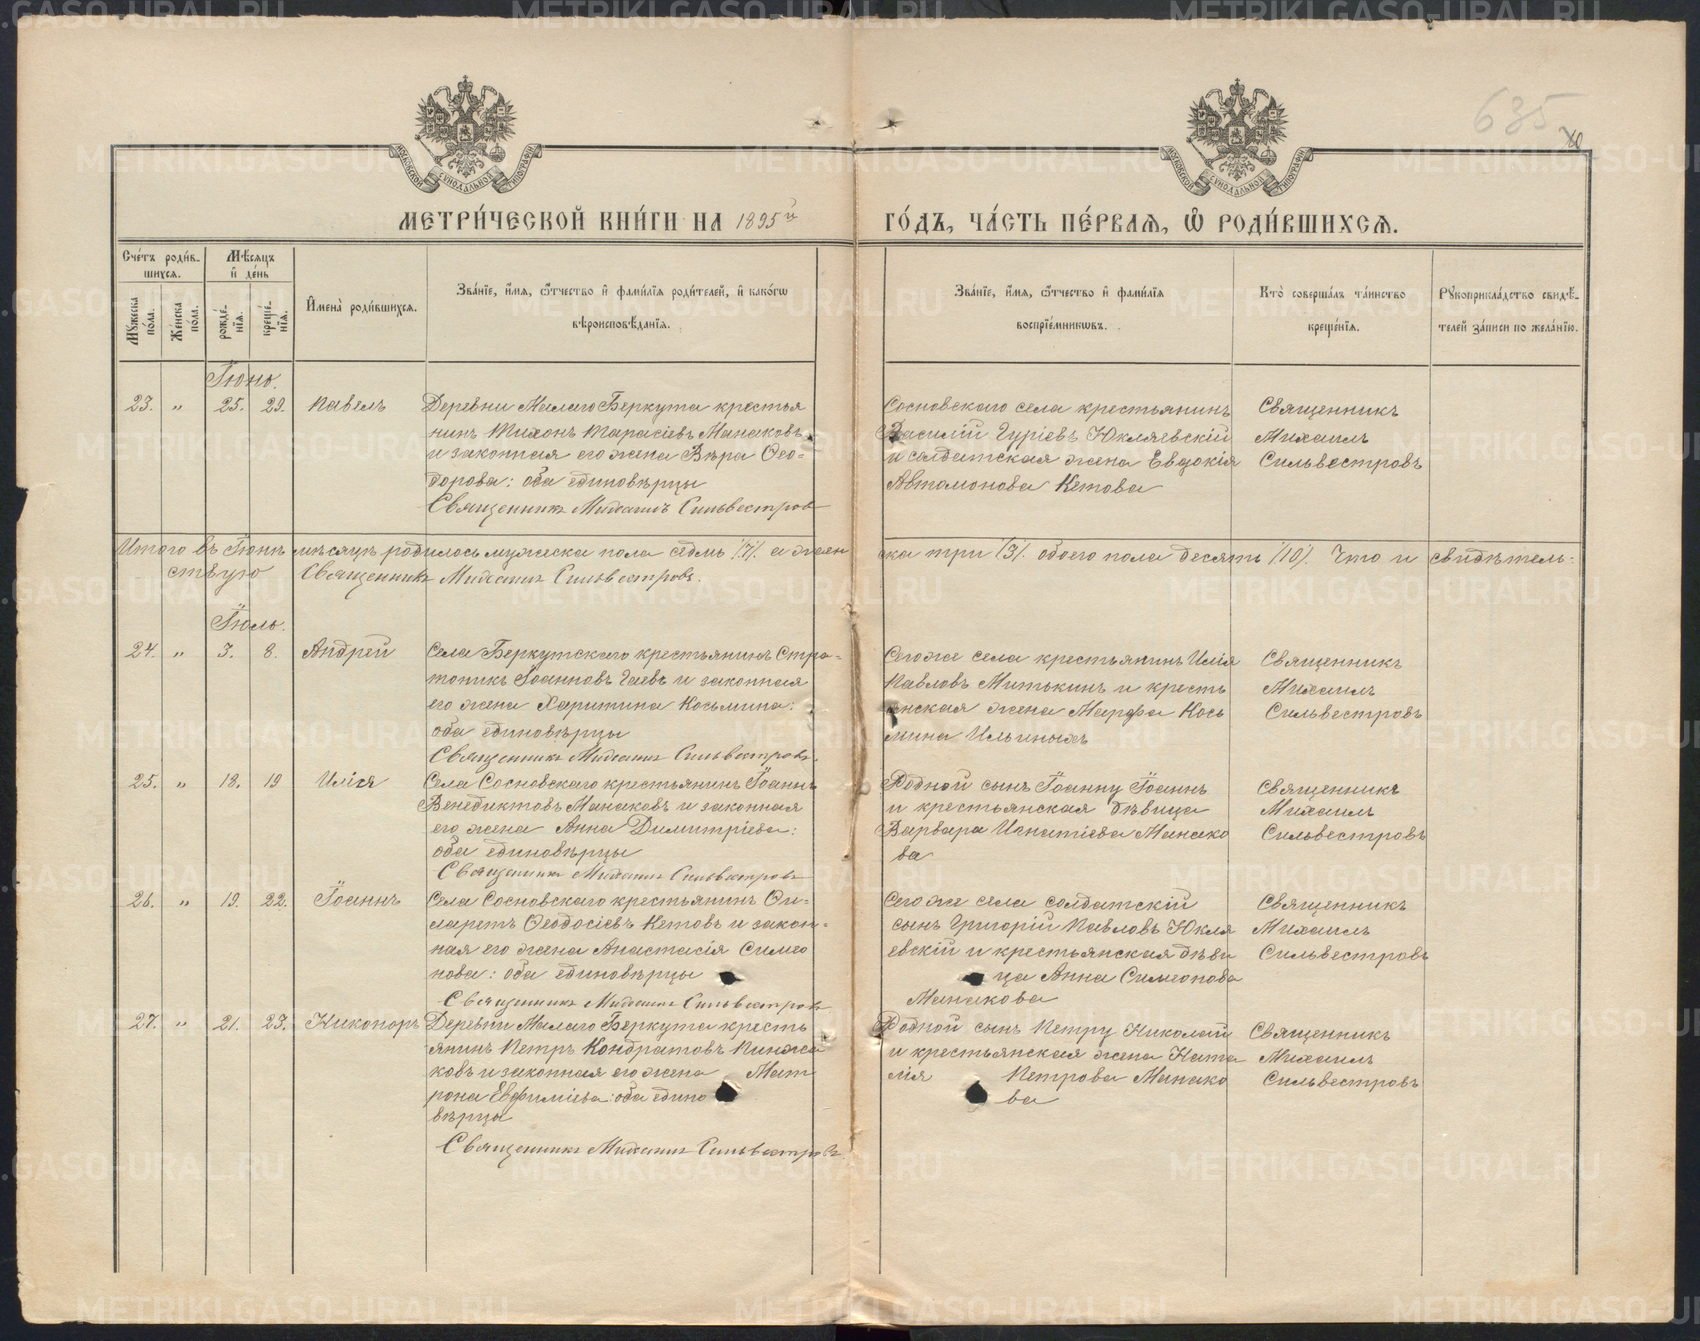 635
МОСКОВСКОЙ СѴНОДАЛЬНОЙ ТИПОГРАФІИ
МОСКОВСКОЙ СѴНОДАЛЬНОЙ ТИПОГРАФІИ
МЕТРИ́ЧЕСКОЙ КНИ́ГИ НА 1895й ГО́ДЪ, ЧА́СТЬ ПЕ́РВАѦ, Ѡ҆ РОДИ́ВШИХСѦ.
Сче́тъ роди́в-
шихсѧ.
Мѣ́сѧцъ
и҆ де́нь
Мꙋ́жеска
по́ла.
Же́нска
по́ла.
рожде́-
нїѧ.
креще́-
нїѧ.
И҆мена̀ роди́вшихсѧ.
Зва́нїе, и҆́мѧ, ѻ҆́тчество и҆ фами́лїѧ роди́телей, и҆ како́гѡ
вѣроисповѣ́данїѧ.
Зва́нїе, и҆́мѧ, ѻ҆́тчество и҆ фами́лїѧ
воспрїе́мникѡвъ.
Кто̀ соверша́лъ та́инство
креще́нїѧ.
Рꙋкоприкла́дство свидѣ́-
телей за́писи по жела́нїю.
Іюнь.
23. " 25. 29. Павелъ
Деревни Малаго Беркута крестья
нинъ Тихонъ Тарасіевъ Манаковъ
и законная его жена Вѣра Ѳео-
дорова: оба единовѣрцы
Священникъ Михаилъ Сильвестров
Сосновскаго села крестьянинъ
Василій Гуріевъ Юкляевскій
и солдатская жена Евдокія
Автомонова Кетова
Священникъ
Михаилъ
Сильвестровъ
Итого въ Іюнѣ мѣсяцѣ родилось мужеска пола седмь /7/. а жен ска три /3/. обоего пола десять /10/. Что и свидѣтель-
ствую Священникъ Михаилъ Сильвестровъ.
Іюль.
24. " 3. 8. Андрей
Села Беркутскаго крестьянинъ Стра-
тоникъ Іоанновъ Гаевъ и законная
его жена Харитина Косьмина:
оба единовѣрцы
Священникъ Михаилъ Сильвестровъ.
Сегоже села крестьянинъ Илія
Павловъ Митькинъ и кресть
янская жена Марѳа Кось
мина Ильиныхъ
Священникъ
Михаилъ
Сильвестровъ
25. " 18. 19 Илія
Села Сосновскаго крестьянинъ Іоаннъ
Венедиктовъ Манаковъ и законная
его жена Анна Димитріева:
оба единовѣрцы
Священникъ Михаилъ Сильвестровъ
Родной сынъ Іоанну Іоаннъ
и крестьянская дѣвица
Варвара Игнатіева Манако
ва
Священникъ
Михаилъ
Сильвестровъ
26. " 19. 22. Іоаннъ
Села Сосновскаго крестьянинъ Фи-
ларетъ Ѳеодосіевъ Кетовъ и закон-
ная его жена Анастасія Симео
нова: оба единовѣрцы
Священникъ Михаилъ Сильвестров
Сегоже села солдатскій
сынъ Григорій Павловъ Юкля
евскій и крестьянская дѣви
ца Анна Симеонова
Манакова
Священникъ
Михаилъ
Сильвестровъ
27. " 21. 23. Никоноръ
Деревни Малаго Беркута кресть
янинъ Петръ Кондратовъ Пинжа
ковъ и законная его жена Мат
рона Евфиміева: оба едино
вѣрцы
Священникъ Михаилъ Сильвестровъ.
Родной сынъ Петру Николай
и крестьянская жена Ната
лія Петрова Манако
ва
Священникъ
Михаилъ
Сильвестровъ
METRIKI.GASO-URAL.RU